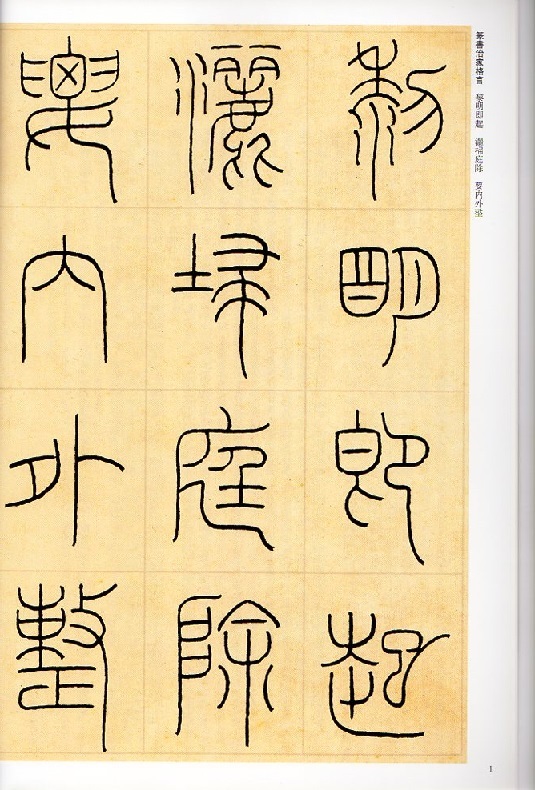 篆書治家格言 黎明即起 灑埽庭除 要内外整
黎明即起
灑埽庭除
要内外整
1